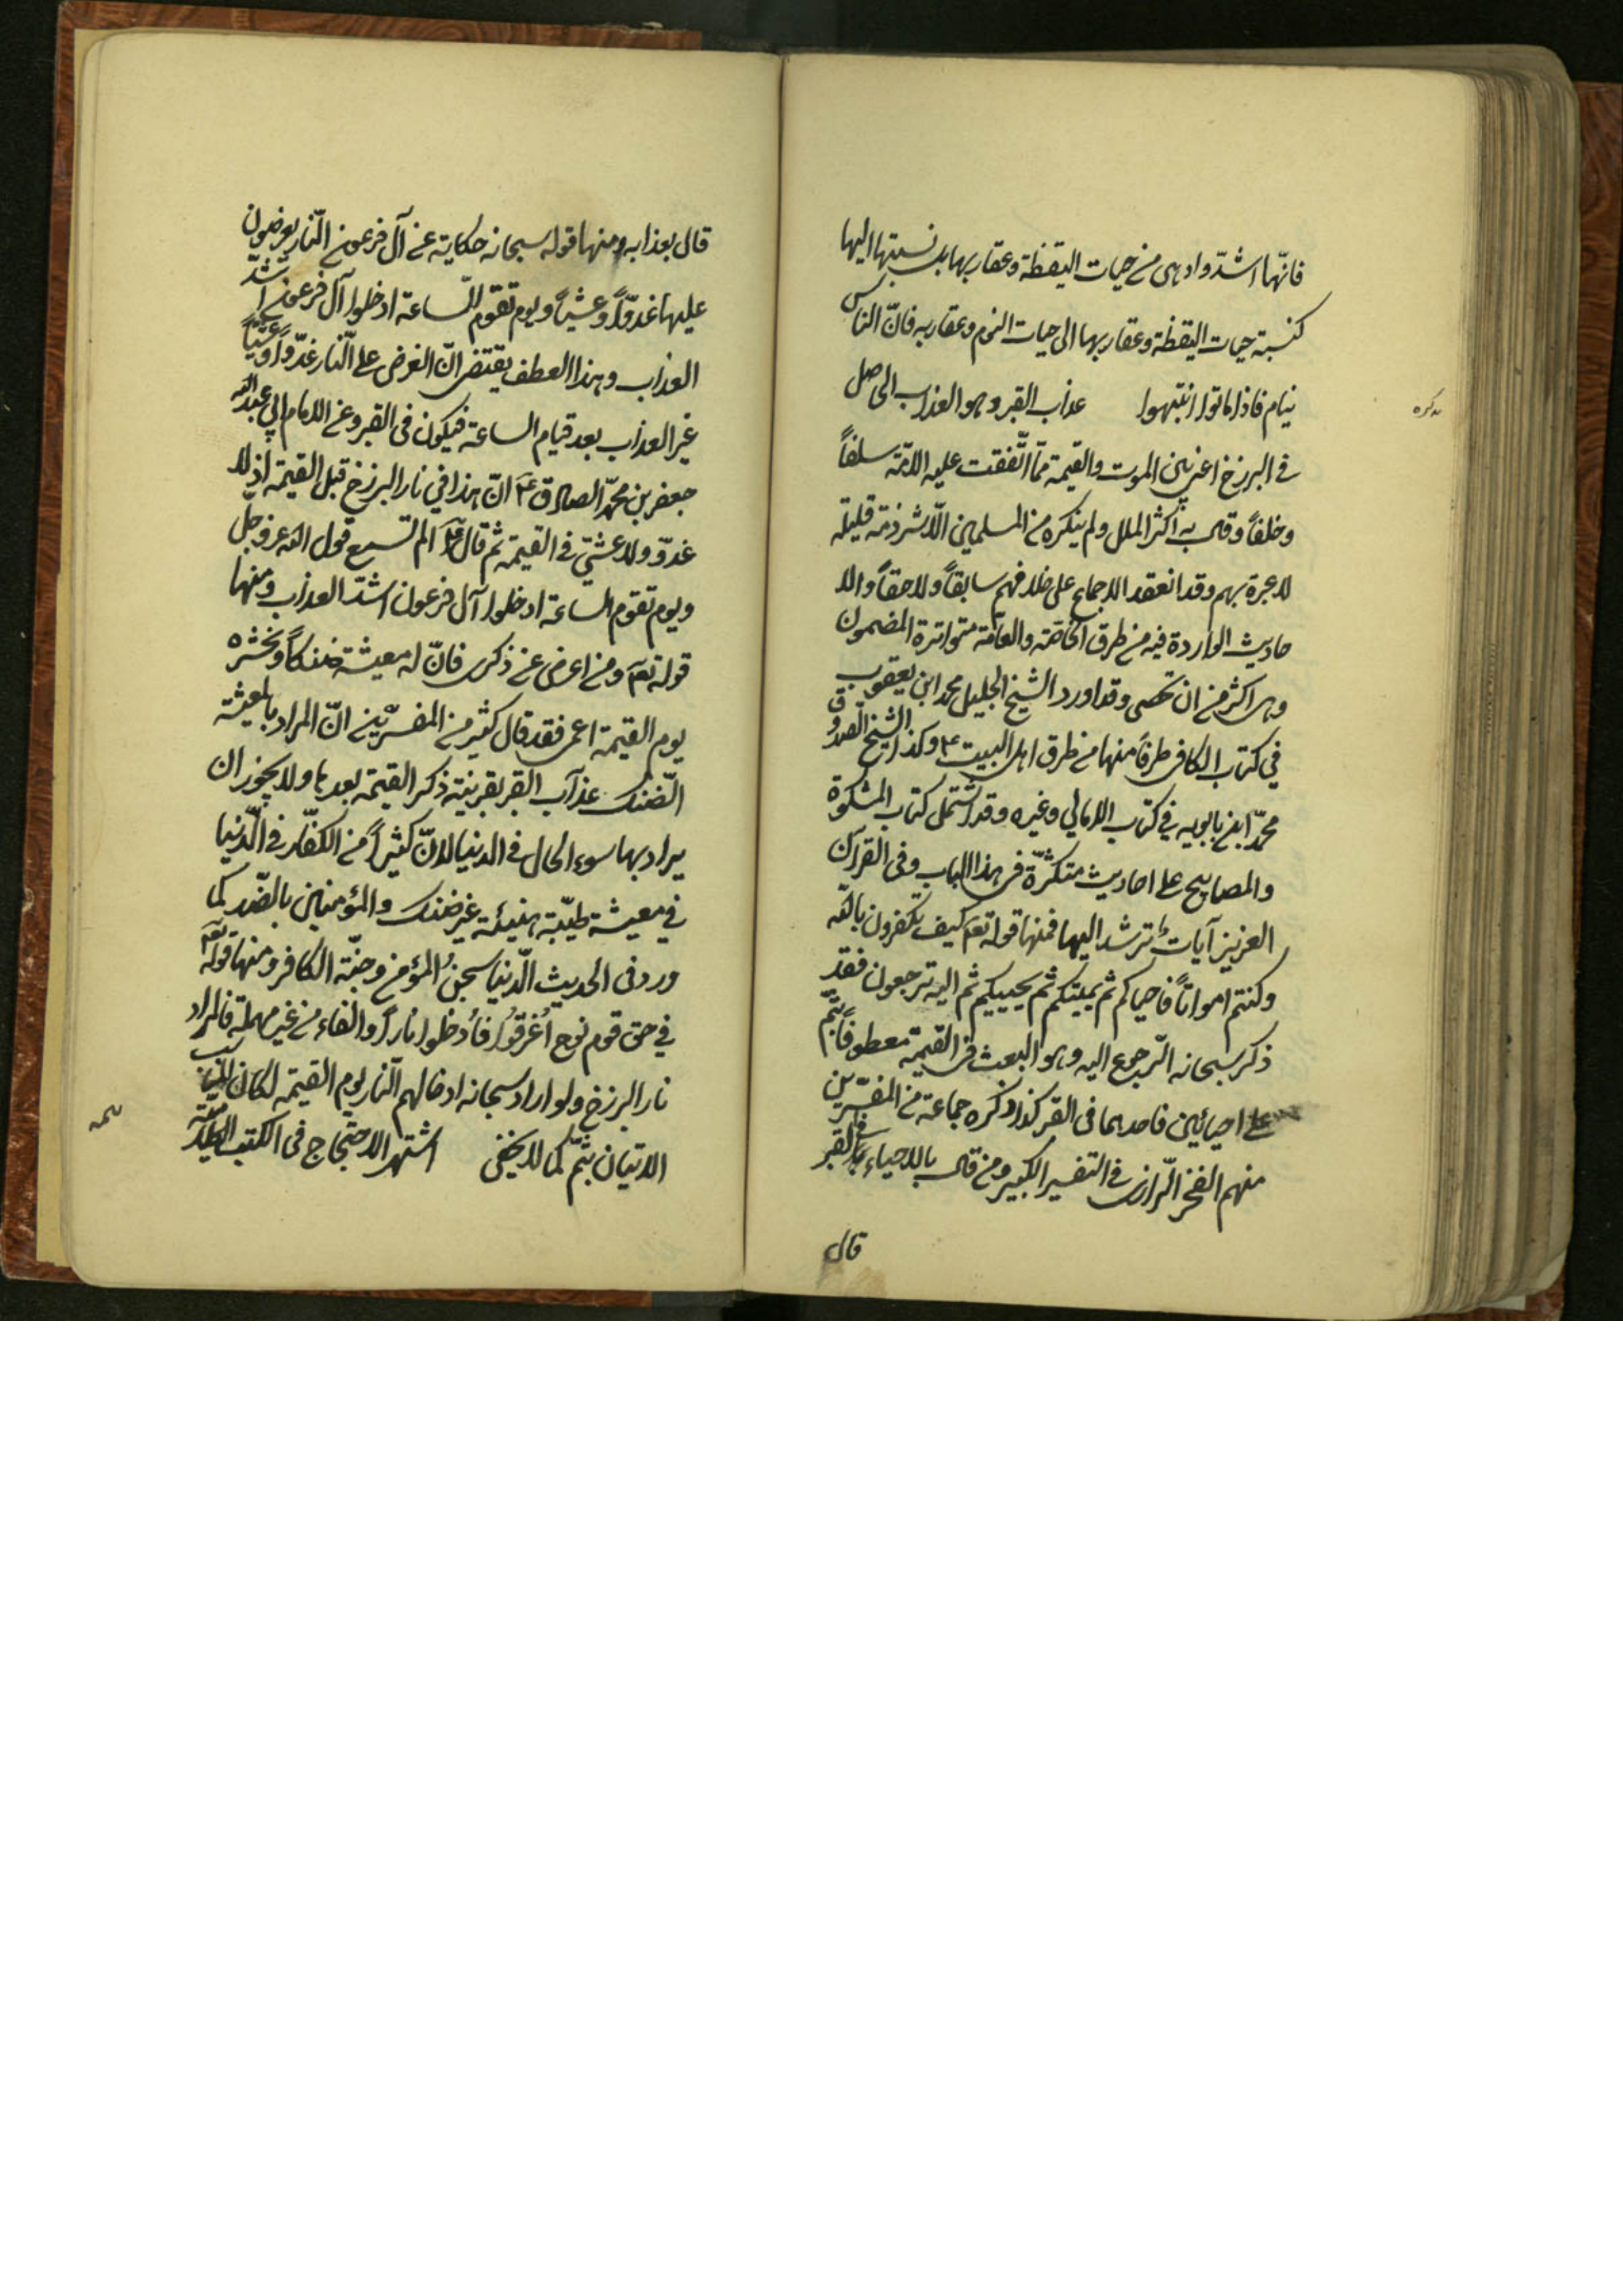 فانّها اشدّ وادهى من حيات اليقظة وعقاربها بل نسبتها اليها
كنسبة حيات اليقظة وعقاربها الى حيات النوم وعقاربه فانّ الناس
نيام فاذا ماتوا انتبهوا عذاب القبر وهو العذاب الحاصل
في البرزخ اعني بين الموت والقيمة ممّا اتّفقت عليه الامّة سلفاً
وخلفاً وقال به اكثر الملل ولم ينكره من المسلمين الّا شرذمة قليلة
لا عبرة بهم وقد انعقد الاجماع على خلافهم سابقاً ولاحقاً والا
حاديث الواردة فيه من طرق الخاصّة والعامّة متواترة المضمون
وهى اكثر من ان تحصى وقد اورد الشيخ الجليل محمد ابن يعقوب
في كتاب الكافى طرفاً منها من طرق اهل البيت ع وكذا الشيخ الصدوق
محمّد ابن بابويه في كتاب الامالي وغيره وقد اشتمل كتاب المشكوة
والمصابيح على احاديث متكثّرة فى هذا الباب وفى القرآن
العزيز آيات ترشد اليها فمنها قوله تعم كيف تكفرون بالله
وكنتم امواتاً فاحياكم ثم يميتكم ثم يحييكم ثم اليه ترجعون فقد
ذكر سبحانه الرّجوع اليه وهو البعث فى القيمة معطوفاً بثم
على احيائين فاحدهما فى القبر كذا ذكره جماعة من المفسّرين
منهم الفخر الرّازى في التفسير الكبير ومن قال بالاحياء في القبر
قال
قال بعذابه ومنها قوله سبحانه حكاية عن آل فرعون النّار يعرضون
عليها غدوّاً وعشيّاً ويوم تقوم السّاعة ادخلوا آل فرعون اشدّ
العذاب وهذا العطف يقتضى انّ العرض على النّار غدّواً وعشيّاً
غير العذاب بعد قيام الساعة فيكون فى القبر وعن الامام ابي عبد الله
جعفر بن محمّد الصادق ع انّ هذا في نار البرزخ قبل القيمة اذ لا
غدوّ ولا عشىّ فى القيمة ثم قال ع الم تسمع قول الله عز وجل
ويوم تقوم الساعة ادخلوا آل فرعون اشدّ العذاب ومنها
قوله تعم ومن اعرض عن ذكرى فانّ له معيشة ضنكاً ونحشره
يوم القيمة اعمى فقد قال كثير من المفسّرين انّ المراد بالمعيشة
الضّنك عذاب القبر بقرينة ذكر القيمة بعدها ولا يجوز ان
يراد بها سوء الحال فى الدنيا لانّ كثيراً من الكفّار فى الدّنيا
في معيشة طيّبة هنيئة غير ضنك والمؤمنين بالضّد كما
ورد فى الحديث الدّنيا سجن المؤمن وجنّة الكافر ومنها قوله تعم
في حق قوم نوح اُغرقُوا فأدخلوا ناراً والفاء من غير مهلة فالمراد
نار البرزخ ولو اراد سبحانه ادخالهم النّار يوم القيمة لكان المناسب
الاتيان بثمّ كما لا يخفى اشتهر الاحتجاج فى الكتب الكلاميّة